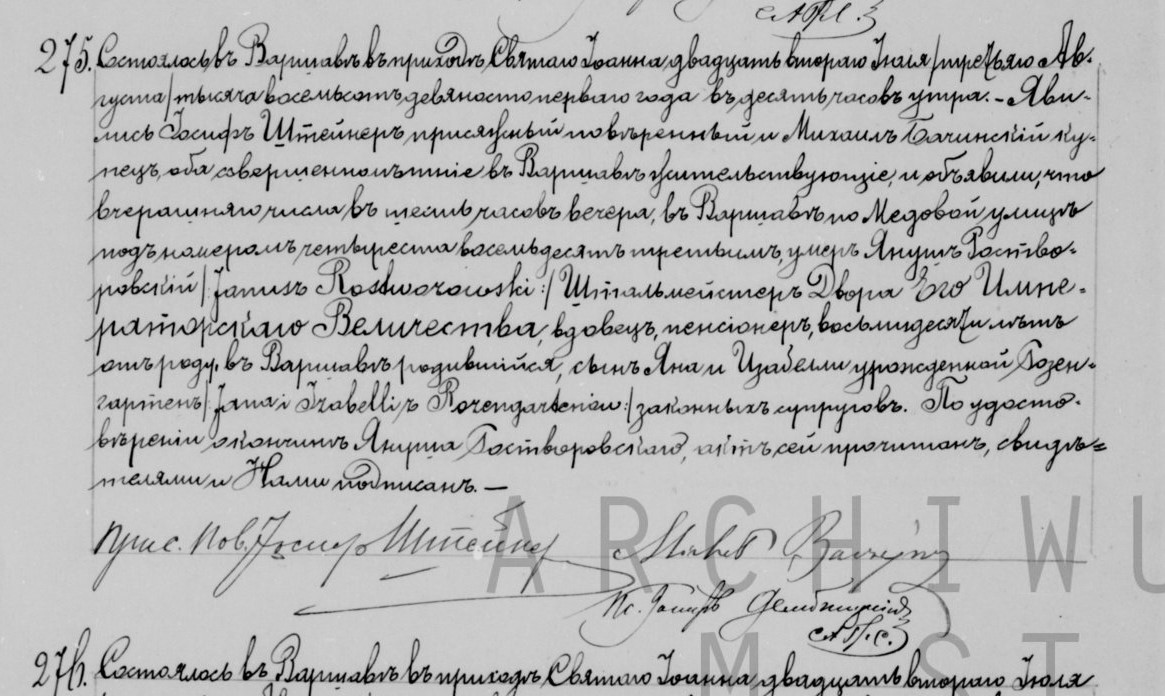 С.А.Г.С.
275. Состоялось въ Варшавѣ въ приходѣ Святаго Іоанна двадцать втораго Іюля /третьяго Ав-
густа/ тысяча восемьсотъ девяносто перваго года въ десять часовъ утра. - Яви-
лись Іосифъ Штейнеръ присяжный повѣренный и Михаилъ Бачинскій ку-
пецъ, оба совершеннолѣтніе въ Варшавѣ жительствующіе, и объявили, что
вчерашняго числа въ шесть часовъ вечера, въ Варшавѣ по Медовой улицѣ
подъ номеромъ четыреста восемьдесятъ третьимъ, умеръ Янушъ Роство-
ровскій /:Janusz Rostworowski:/ Шталмейстеръ Двора Его Импе-
раторскаго Величества, вдовецъ, пенсіонеръ, восьмидесяти лѣтъ
отъ роду, въ Варшавѣ родившійся, сынъ Яна и Изабелли урожденной Розен-
гартенъ /:Jana i Izabelli z Rozengartenów:/ законныхъ супруговъ. По удосто-
вѣреніи о кончинѣ Януша Ростворовскаго, актъ сей прочитанъ, свидѣ=
телями и Нами подписанъ. —
Прис. Пов. Іосифъ Штейнер Michał
Кс. Іосифъ
С.А.Г.С.
ARCHIWU
M ST
276. Состоялось въ Варшавѣ въ приходѣ Святаго Іоанна двадцать втораго Іюля